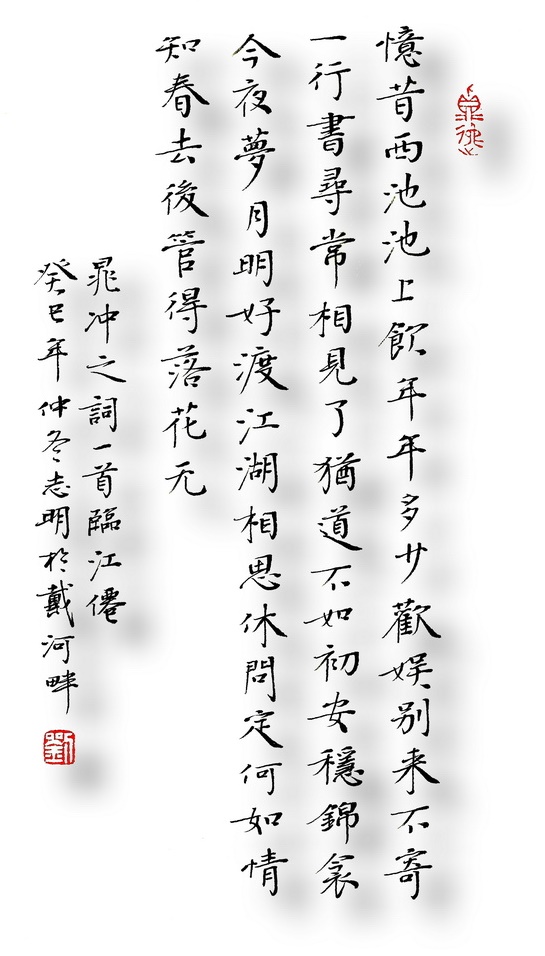 憶昔西池池上飲年年多少歡娱别来不寄
一行書尋常相見了猶道不如初安穩錦衾
今夜夢月明好渡江湖相思休問定何如情
知春去後管得落花无
晁冲之詞一首臨江僊
癸巳年仲冬志明於戴河畔
劉